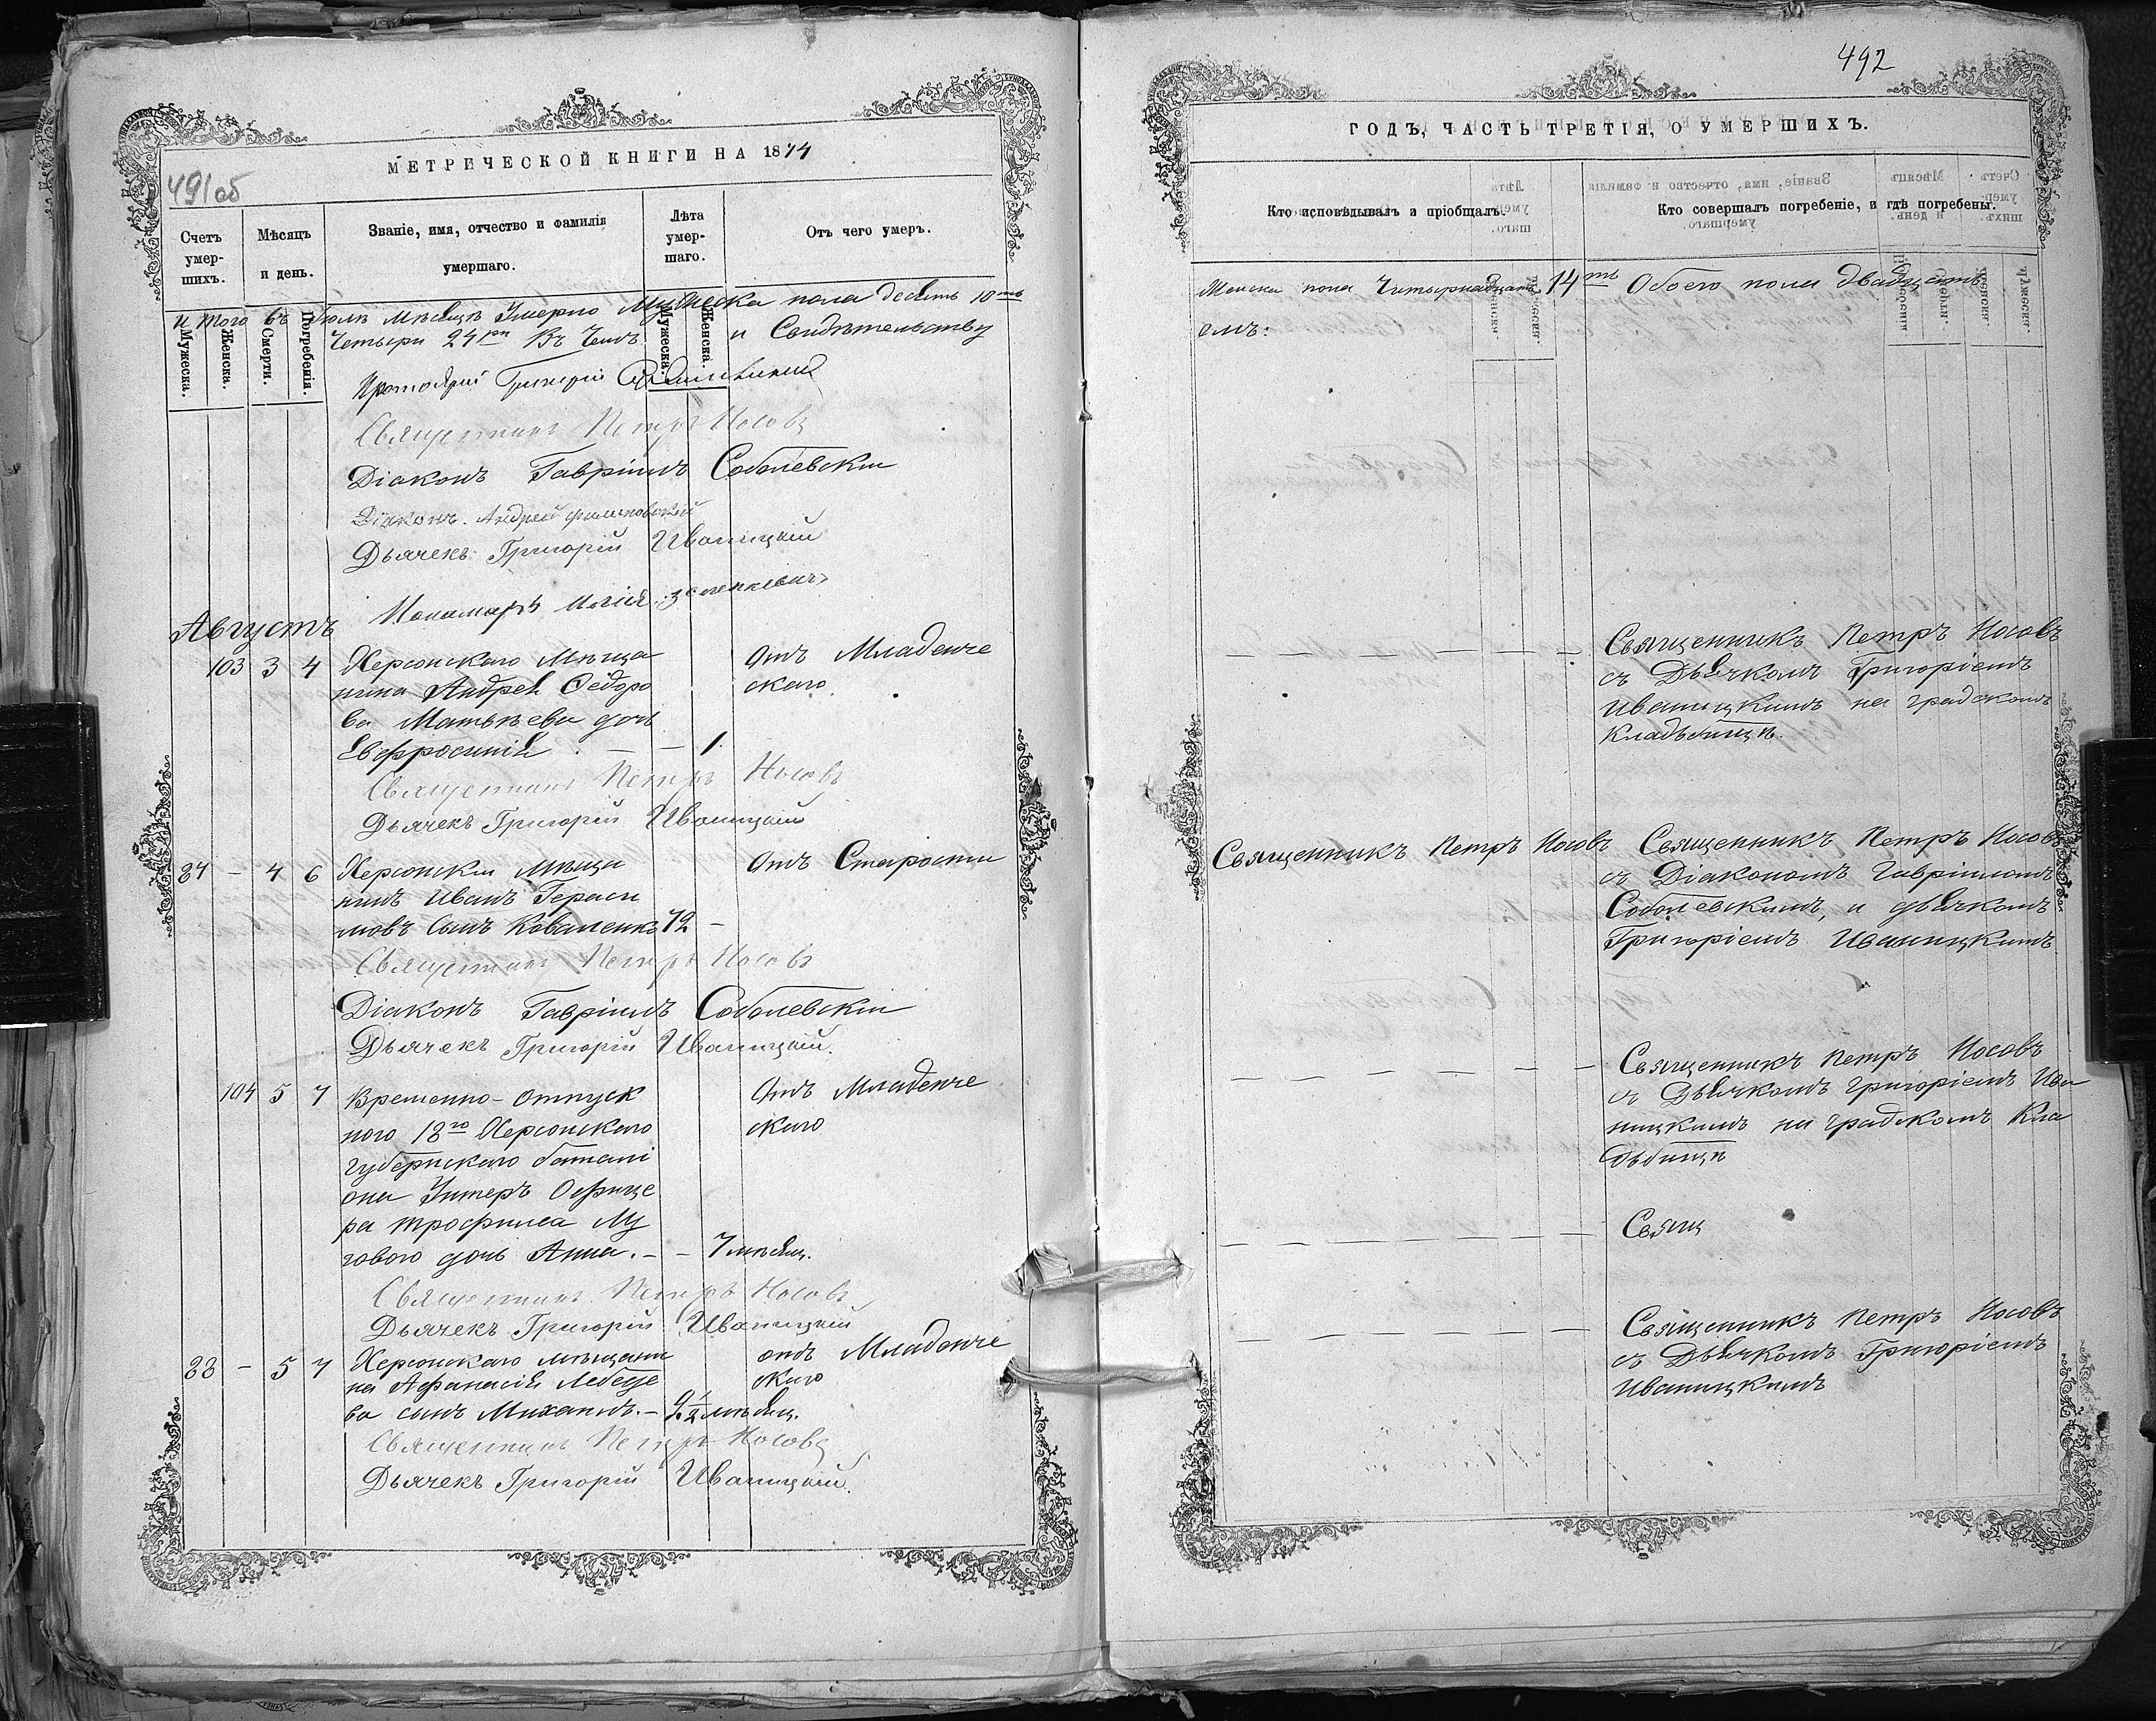 492
МЕТРИЧЕСКОЙ КНИГИ НА 1874
491об
Счетъ умер-шихъ.
Мѣсяцъ и день.
Званіе, имя, отчество и фамилія умершаго.
Лѣта умер-шаго.
Отъ чего умеръ.
Мужеска.
Женска.
Смерти.
Погребенія.
Мужеска.
Женска.
И того въ Іюлѣ мѣсяцѣ Умерло Мужеска пола десять 10ть
Четыри 24ри Въ Чемъ и Свидѣтельству
Протоіерей Григорій
Священникъ Петръ Носовъ
Діаконъ Гавріилъ Соболевскій
Діаконъ Андрей
Дьячекъ Григорій Иваницкій
Пономарь
Августъ
103 3 4 Херсонскаго Мѣща
нина Андрея Ѳедоро
ва Матвѣева дочь
Евфросинія . — — 1.
Отъ Младенче
скаго
Священникъ Петръ Носовъ
Дьячекъ Григорій Иваницкій
87 – 4 6 Херсонскій мѣща
нинъ Иванъ Гераси
мовъ сынъ Коваленко 72 –
Отъ Старости
Священникъ Петръ Носовъ
Діаконъ Гавріилъ Соболевскій
Дьячекъ Григорій Иваницкій.
104 5 7 Временно-отпуск
ного 18го Херсонскаго
губернскаго баталі
она Унтеръ Офице
ра Трофима Лу
говаго дочь Анна. – – 7 мѣсяц.
Отъ Младенче
скаго
Священникъ Петръ Носовъ
Дьячекъ Григорій Иваницкій
88 – 5 7 Херсонскаго мѣщани
на Афанасія Лебеде
ва сынъ Михаилъ. –
мѣсяц.
отъ Младенче
скаго
Священникъ Петръ Носовъ
Дьячекъ Григорій Иваницкій.
ГОДЪ, ЧАСТЬ ТРЕТІЯ, О УМЕРШИХЪ.
Кто исповѣдывалъ и пріобщалъ.
Кто совершалъ погребеніе, и гдѣ погребены.
Женска пола Читырнадцать 14ть Обоего пола двадцать
емъ:
Священникъ Петръ Носовъ
съ Дьячкомъ Григоріемъ
Иваницкимъ на градскомъ
Кладбищѣ.
Священникъ Петръ Носовъ
Священникъ Петръ Носовъ
съ Діакономъ Гавріиломъ
Соболевскимъ, и дьячкомъ
Григоріемъ Иваницкимъ
Священникъ Петръ Носовъ
съ Дьячкомъ Григоріемъ Ива
ницкимъ на градскомъ Кла
дбищѣ
Свящ
Священникъ Петръ Носовъ
съ Дьячкомъ Григоріемъ
Иваницкимъ